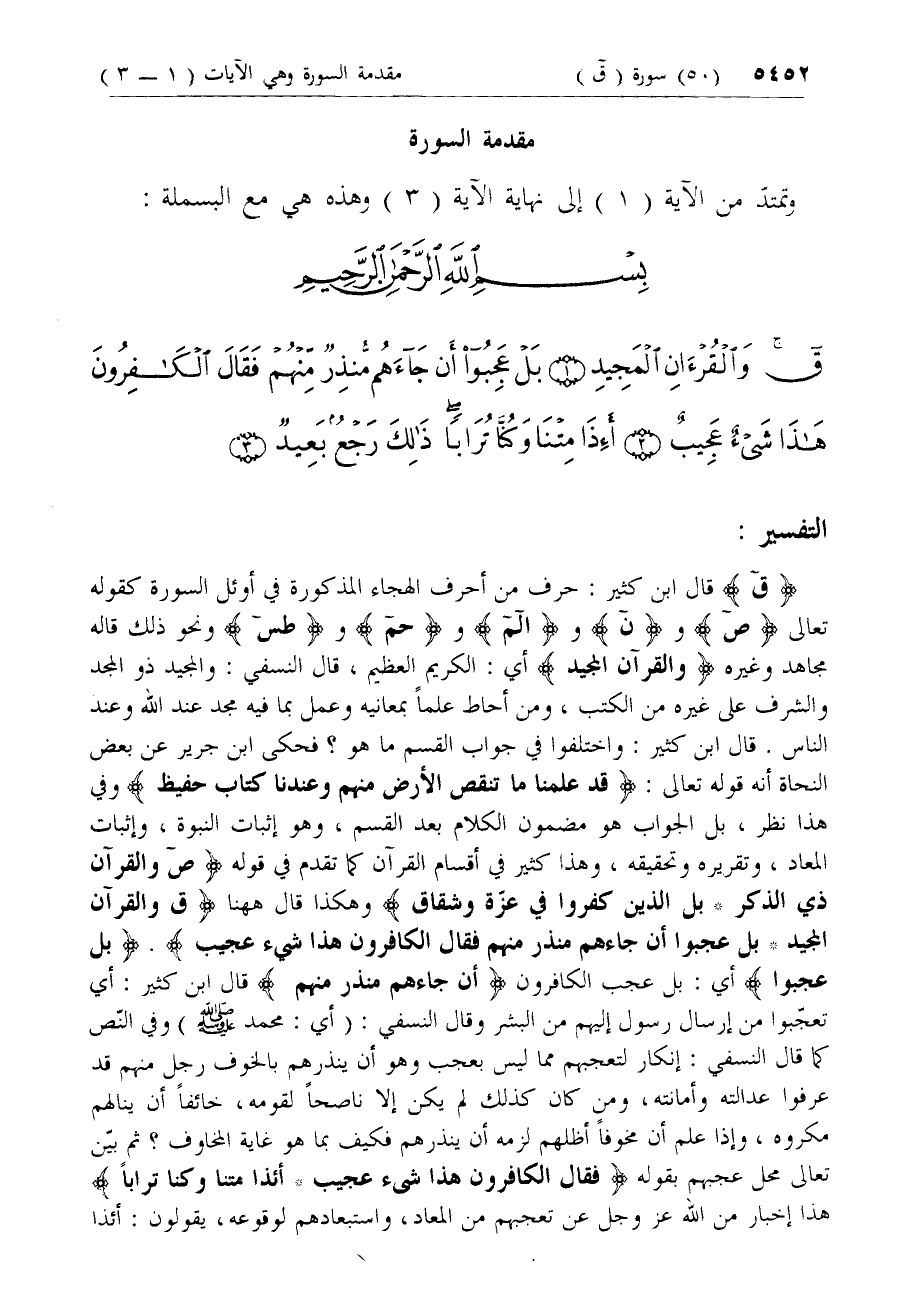 ٥٤٥٢ (٥٠) سورة ( قٓ ) مقدمة السورة وهي الآيات ( ١ – ٣ )
مقدمة السورة
وتمتدّ من الآية ( ١ ) إلى نهاية الآية ( ٣ ) وهذه هي مع البسملة :
بِسْمِ ٱللَّهِ ٱلرَّحْمَٰنِ ٱلرَّحِيمِ
قٓ ۚ وَٱلْقُرْءَانِ ٱلْمَجِيدِ ﴿١﴾ بَلْ عَجِبُوٓا۟ أَن جَآءَهُم مُّنذِرٌ مِّنْهُمْ فَقَالَ ٱلْكَٰفِرُونَ
هَٰذَا شَىْءٌ عَجِيبٌ ﴿٢﴾ أَءِذَا مِتْنَا وَكُنَّا تُرَابًا ۖ ذَٰلِكَ رَجْعٌۢ بَعِيدٌ ﴿٣﴾
التفسير :
﴿ قٓ ﴾ قال ابن كثير : حرف من أحرف الهجاء المذكورة في أوئل السورة كقوله
تعالى ﴿ صٓ ﴾ و ﴿ نٓ ﴾ و ﴿ الٓمٓ ﴾ و ﴿ حمٓ ﴾ و ﴿ طسٓ ﴾ ونحو ذلك قاله
مجاهد وغيره ﴿ والقرآن المجيد ﴾ أي : الكريم العظيم ، قال النسفي : والمجيد ذو المجد
والشرف على غيره من الكتب ، ومن أحاط علماً بمعانيه وعمل بما فيه مجد عند الله وعند
الناس . قال ابن كثير : واختلفوا في جواب القسم ما هو ؟ فحكى ابن جرير عن بعض
النحاة أنه قوله تعالى : ﴿ قد علمنا ما تنقص الأرض منهم وعندنا كتاب حفيظ ﴾ وفي
هذا نظر ، بل الجواب هو مضمون الكلام بعد القسم ، وهو إثبات النبوة ، وإثبات
المعاد ، وتقريره وتحقيقه ، وهذا كثير في أقسام القرآن كما تقدم في قوله ﴿ صٓ والقرآن
ذي الذكر * بل الذين كفروا في عزّة وشقاق ﴾ وهكذا قال ههنا ﴿ ق والقرآن
المجيد * بل عجبوا أن جاءهم منذر منهم فقال الكافرون هذا شيء عجيب ﴾ . ﴿ بل
عجبوا ﴾ أي : بل عجب الكافرون ﴿ أن جاءهم منذر منهم ﴾ قال ابن كثير : أي
تعجّبوا من إرسال رسول إليهم من البشر وقال النسفي : ( أي : محمد ﷺ ) وفي النّص
كما قال النسفي : إنكار لتعجبهم مما ليس بعجب وهو أن ينذرهم بالخوف رجل منهم قد
عرفوا عدالته وأمانته، ومن كان كذلك لم يكن إلا ناصحاً لقومه، خائفاً أن ينالهم
مكروه ، وإذا علم أن مخوفاً أظلهم لزمه أن ينذرهم فكيف بما هو غاية المخاوف ؟ ثم بيّن
تعالى محل عجبهم بقوله ﴿ فقال الكافرون هذا شيء عجيب * أئذا متنا وكنا تراباً ﴾
هذا إخبار من الله عز وجل عن تعجبهم من المعاد، واستبعادهم لوقوعه، يقولون : أئذا